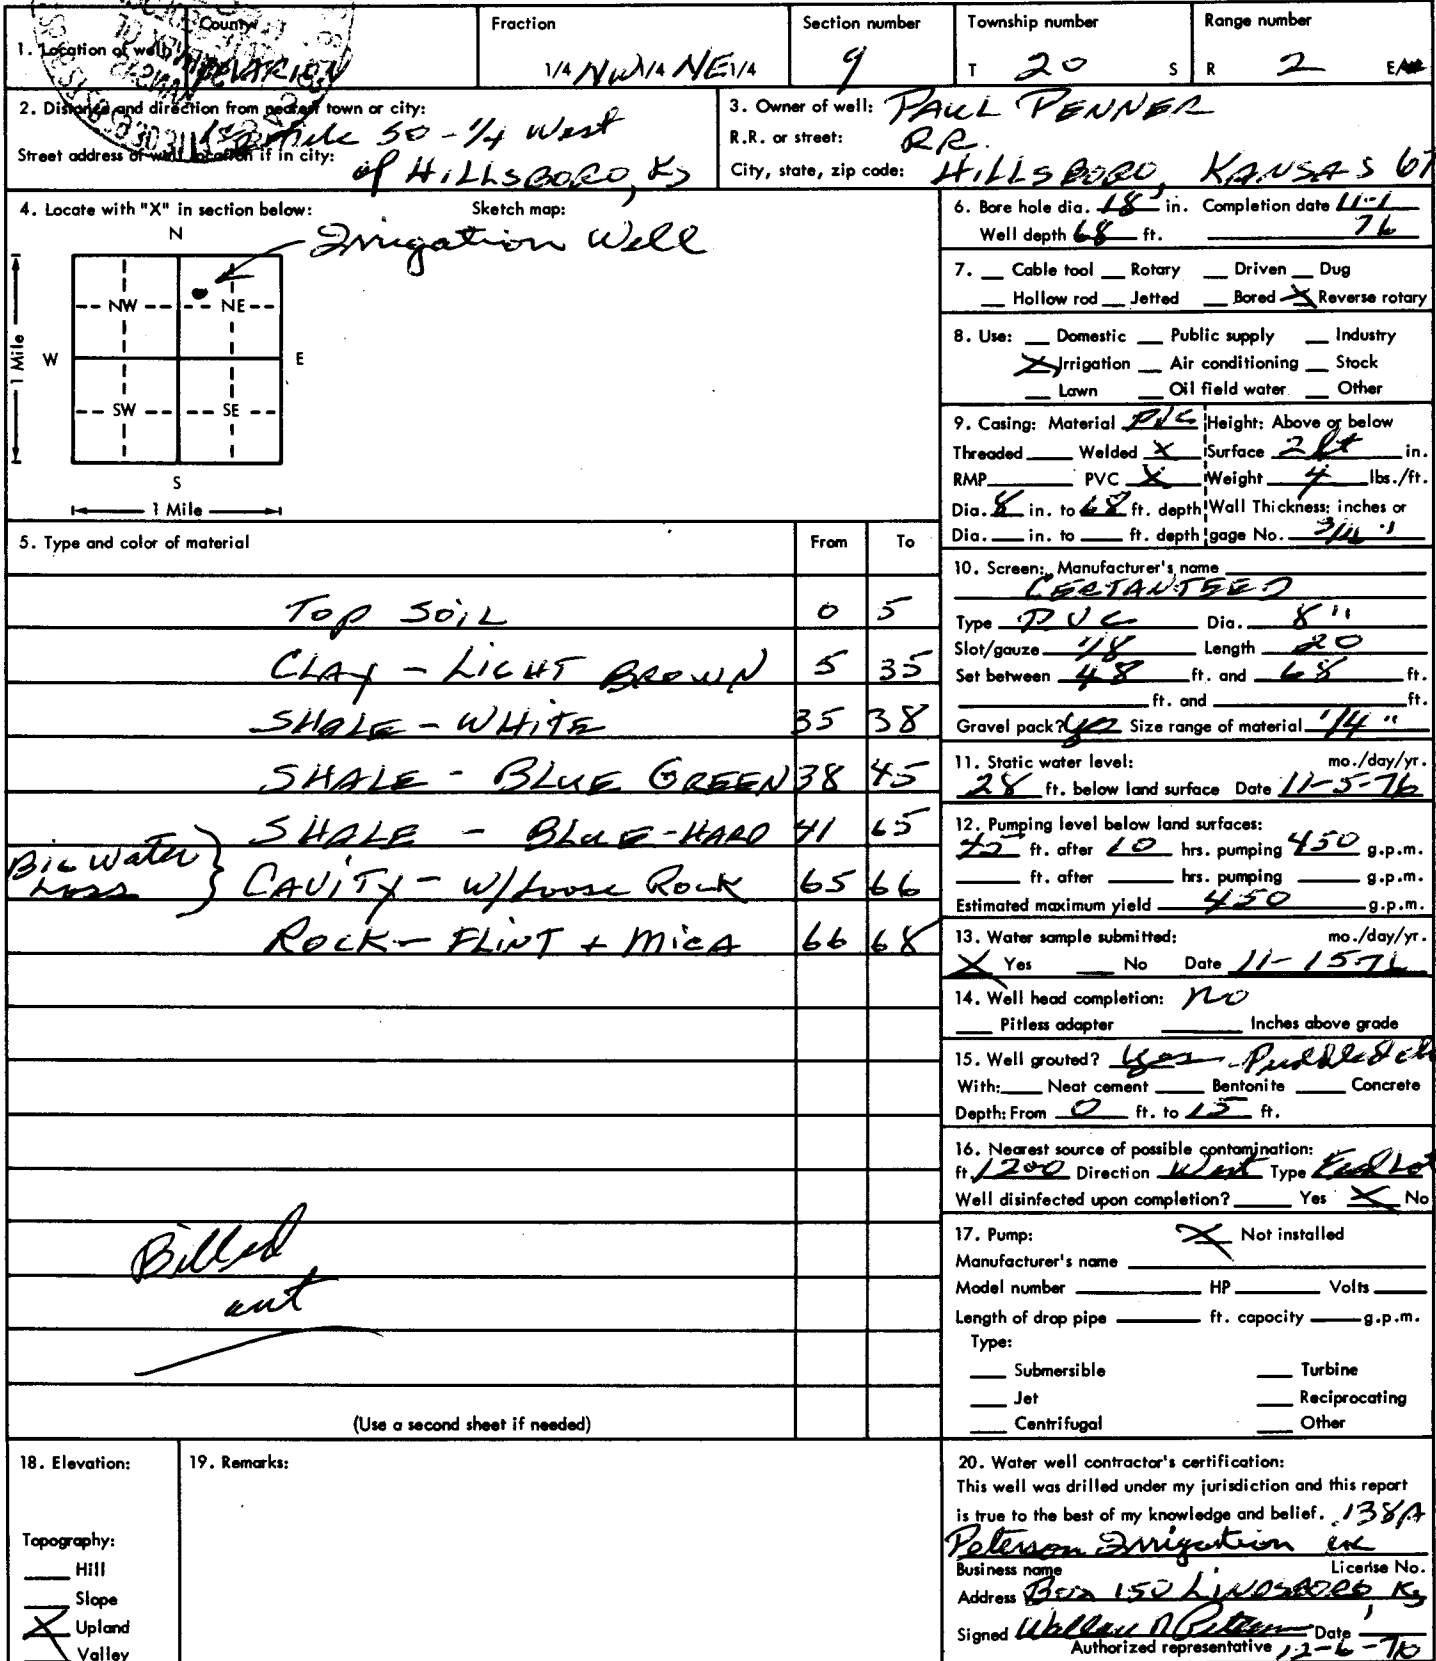 County Fraction Section number Township number Range number
1. Location of well: MARION 1/4 NW 1/4 NE 1/4 9 T 20 S R 2 E/W
2. Distance and direction from nearest town or city: mile SO - 1/4 West
Street address of well location if in city: of HILLSBORO, Ks
3. Owner of well: PAUL PENNER
R.R. or street: RR
City, state, zip code: HILLSBORO, KANSAS 67
4. Locate with "X" in section below: Sketch map:
Irrigation Well
N
NW NE
W E
1 Mile
SW SE
S
1 Mile
6. Bore hole dia. 18 in. Completion date 11-1
Well depth 68 ft. 76
7. Cable tool Rotary Driven Dug
Hollow rod Jetted Bored X Reverse rotary
8. Use: Domestic Public supply Industry
X Irrigation Air conditioning Stock
Lawn Oil field water Other
9. Casing: Material PVC Height: Above or below
Threaded Welded X Surface 2 ft in.
RMP PVC X Weight 4 lbs./ft.
Dia. 8 in. to 68 ft. depth Wall Thickness: inches or
Dia. in. to ft. depth gage No.
5. Type and color of material From To
TOP SOIL 0 5
CLAY - LIGHT BROWN 5 35
SHALE - WHITE 35 38
SHALE - BLUE GREEN 38 45
SHALE - BLUE-HARD 41 65
Big Water Loss } CAVITY - W/Loose Rock 65 66
ROCK - FLINT + MICA 66 68
Billed
out
(Use a second sheet if needed)
10. Screen: Manufacturer's name
CERTANTEED
Type PVC Dia. 8"
Slot/gauze 1/8 Length 20
Set between 48 ft. and 68 ft.
ft. and ft.
Gravel pack? Yes Size range of material 1/4"
11. Static water level: mo./day/yr.
28 ft. below land surface Date 11-5-76
12. Pumping level below land surfaces:
45 ft. after 10 hrs. pumping 450 g.p.m.
ft. after hrs. pumping g.p.m.
Estimated maximum yield 450 g.p.m.
13. Water sample submitted: mo./day/yr.
X Yes No Date 11-15-76
14. Well head completion: no
Pitless adapter Inches above grade
15. Well grouted? yes - Puddled
With: Neat cement Bentonite Concrete
Depth: From 0 ft. to 15 ft.
16. Nearest source of possible contamination:
ft. 1200 Direction West Type Feed Lot
Well disinfected upon completion? Yes X No
17. Pump: X Not installed
Manufacturer's name
Model number HP Volts
Length of drop pipe ft. capacity g.p.m.
Type:
Submersible Turbine
Jet Reciprocating
Centrifugal Other
18. Elevation:
Topography:
Hill
Slope
X Upland
Valley
19. Remarks:
20. Water well contractor's certification:
This well was drilled under my jurisdiction and this report
is true to the best of my knowledge and belief. 138A
Peterson Irrigation inc
Business name License No.
Address Box 150 LINDSBORG Ks
Signed Date
Authorized representative 12-6-76